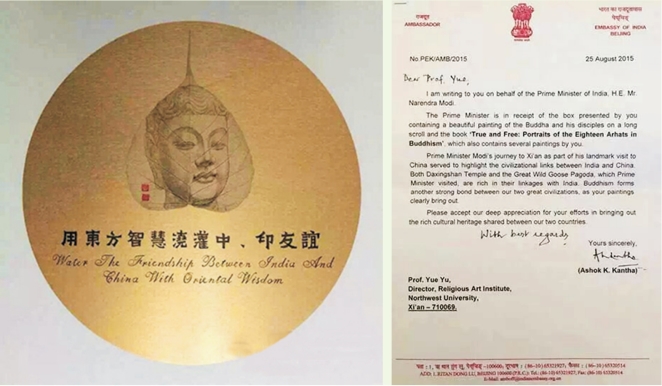 用東方智慧澆灌中、印友誼
Water The Friendship Between India And
China With Oriental Wisdom
राजदूत
AMBASSADOR
भारत का राजदूतावास
पेइचिंग
EMBASSY OF INDIA
BEIJING
No.PEK/AMB/2015
25 August 2015
Dear Prof. Yue,
I am writing to you on behalf of the Prime Minister of India, H.E. Mr.
Narendra Modi.
The Prime Minister is in receipt of the box presented by you
containing a beautiful painting of the Buddha and his disciples on a long
scroll and the book 'True and Free: Portraits of the Eighteen Arhats in
Buddhism', which also contains several paintings by you.
Prime Minister Modi's journey to Xi'an as part of his landmark visit to
China served to highlight the civilizational links between India and China.
Both Daxingshan Temple and the Great Wild Goose Pagoda, which
Prime Minister visited, are rich in their linkages with India. Buddhism forms
another strong bond between our two great civilizations, as your paintings
clearly bring out.
Please accept our deep appreciation for your efforts in bringing out
the rich cultural heritage shared between our two countries.
With best regards,
Yours sincerely,
(Ashok K. Kantha)
Prof. Yue Yu,
Director, Religious Art Institute,
Northwest University,
Xi'an – 710069.
ADD: 1, RI TAN DONG LU, BEIJING 100600 (P.R.C.); Tel.: (86-10) 65321927, Fax: (86-10) 65320514